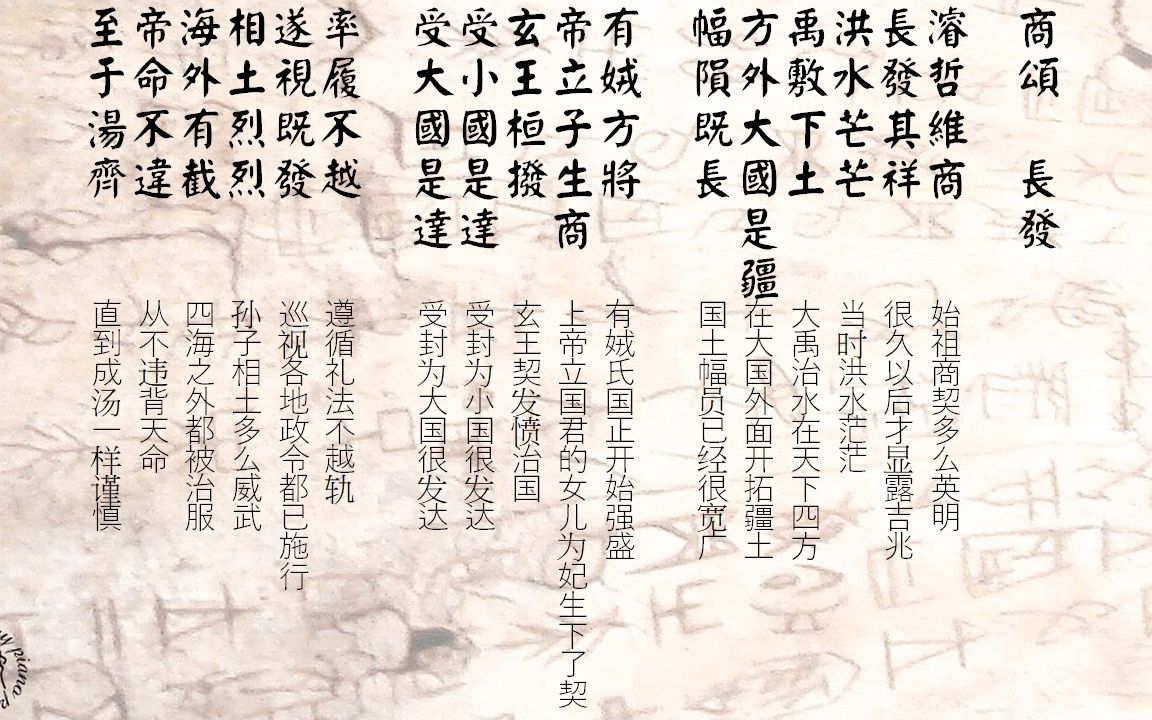 商頌 長發
濬哲維商
長發其祥
洪水芒芒
禹敷下土
方外大國是疆
幅隕既長
有娀方將
帝立子生商
玄王桓撥
受小國是達
受大國是達
率履不越
遂視既發
相土烈烈
海外有截
帝命不違
至于湯齊
始祖商契多么英明
很久以后才显露吉兆
当时洪水茫茫
大禹治水在天下四方
在大国外面开拓疆土
国土幅员已经很宽广
有娀氏国正开始强盛
上帝立国君的女儿为妃生下了契
玄王契发愤治国
受封为小国很发达
受封为大国很发达
遵循礼法不越轨
巡视各地政令都已施行
孙子相土多么威武
四海之外都被治服
从不违背天命
直到成汤一样谨慎
piano